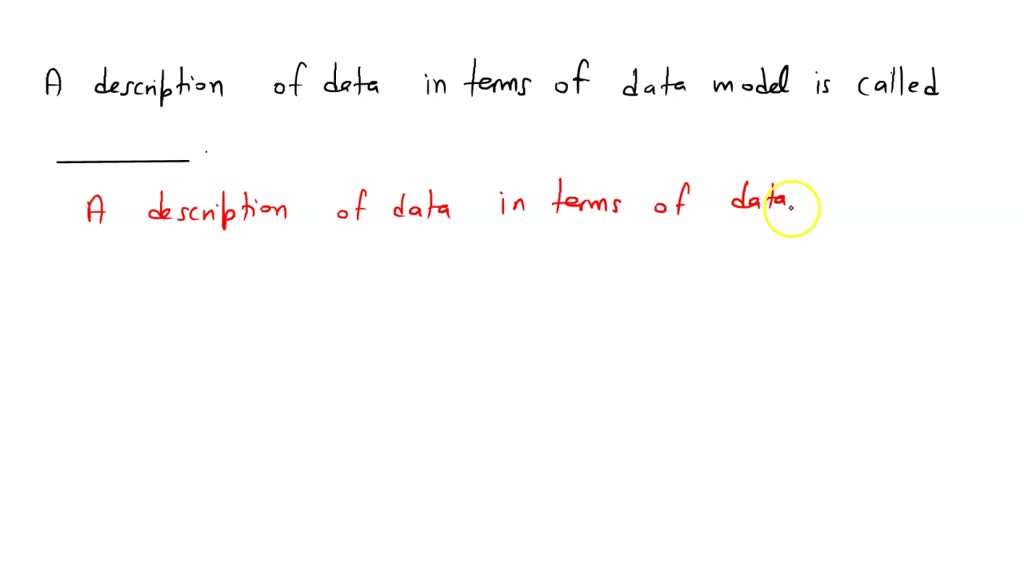 A description of data in terms of data model is called
______ .
A description of data in terms of data.